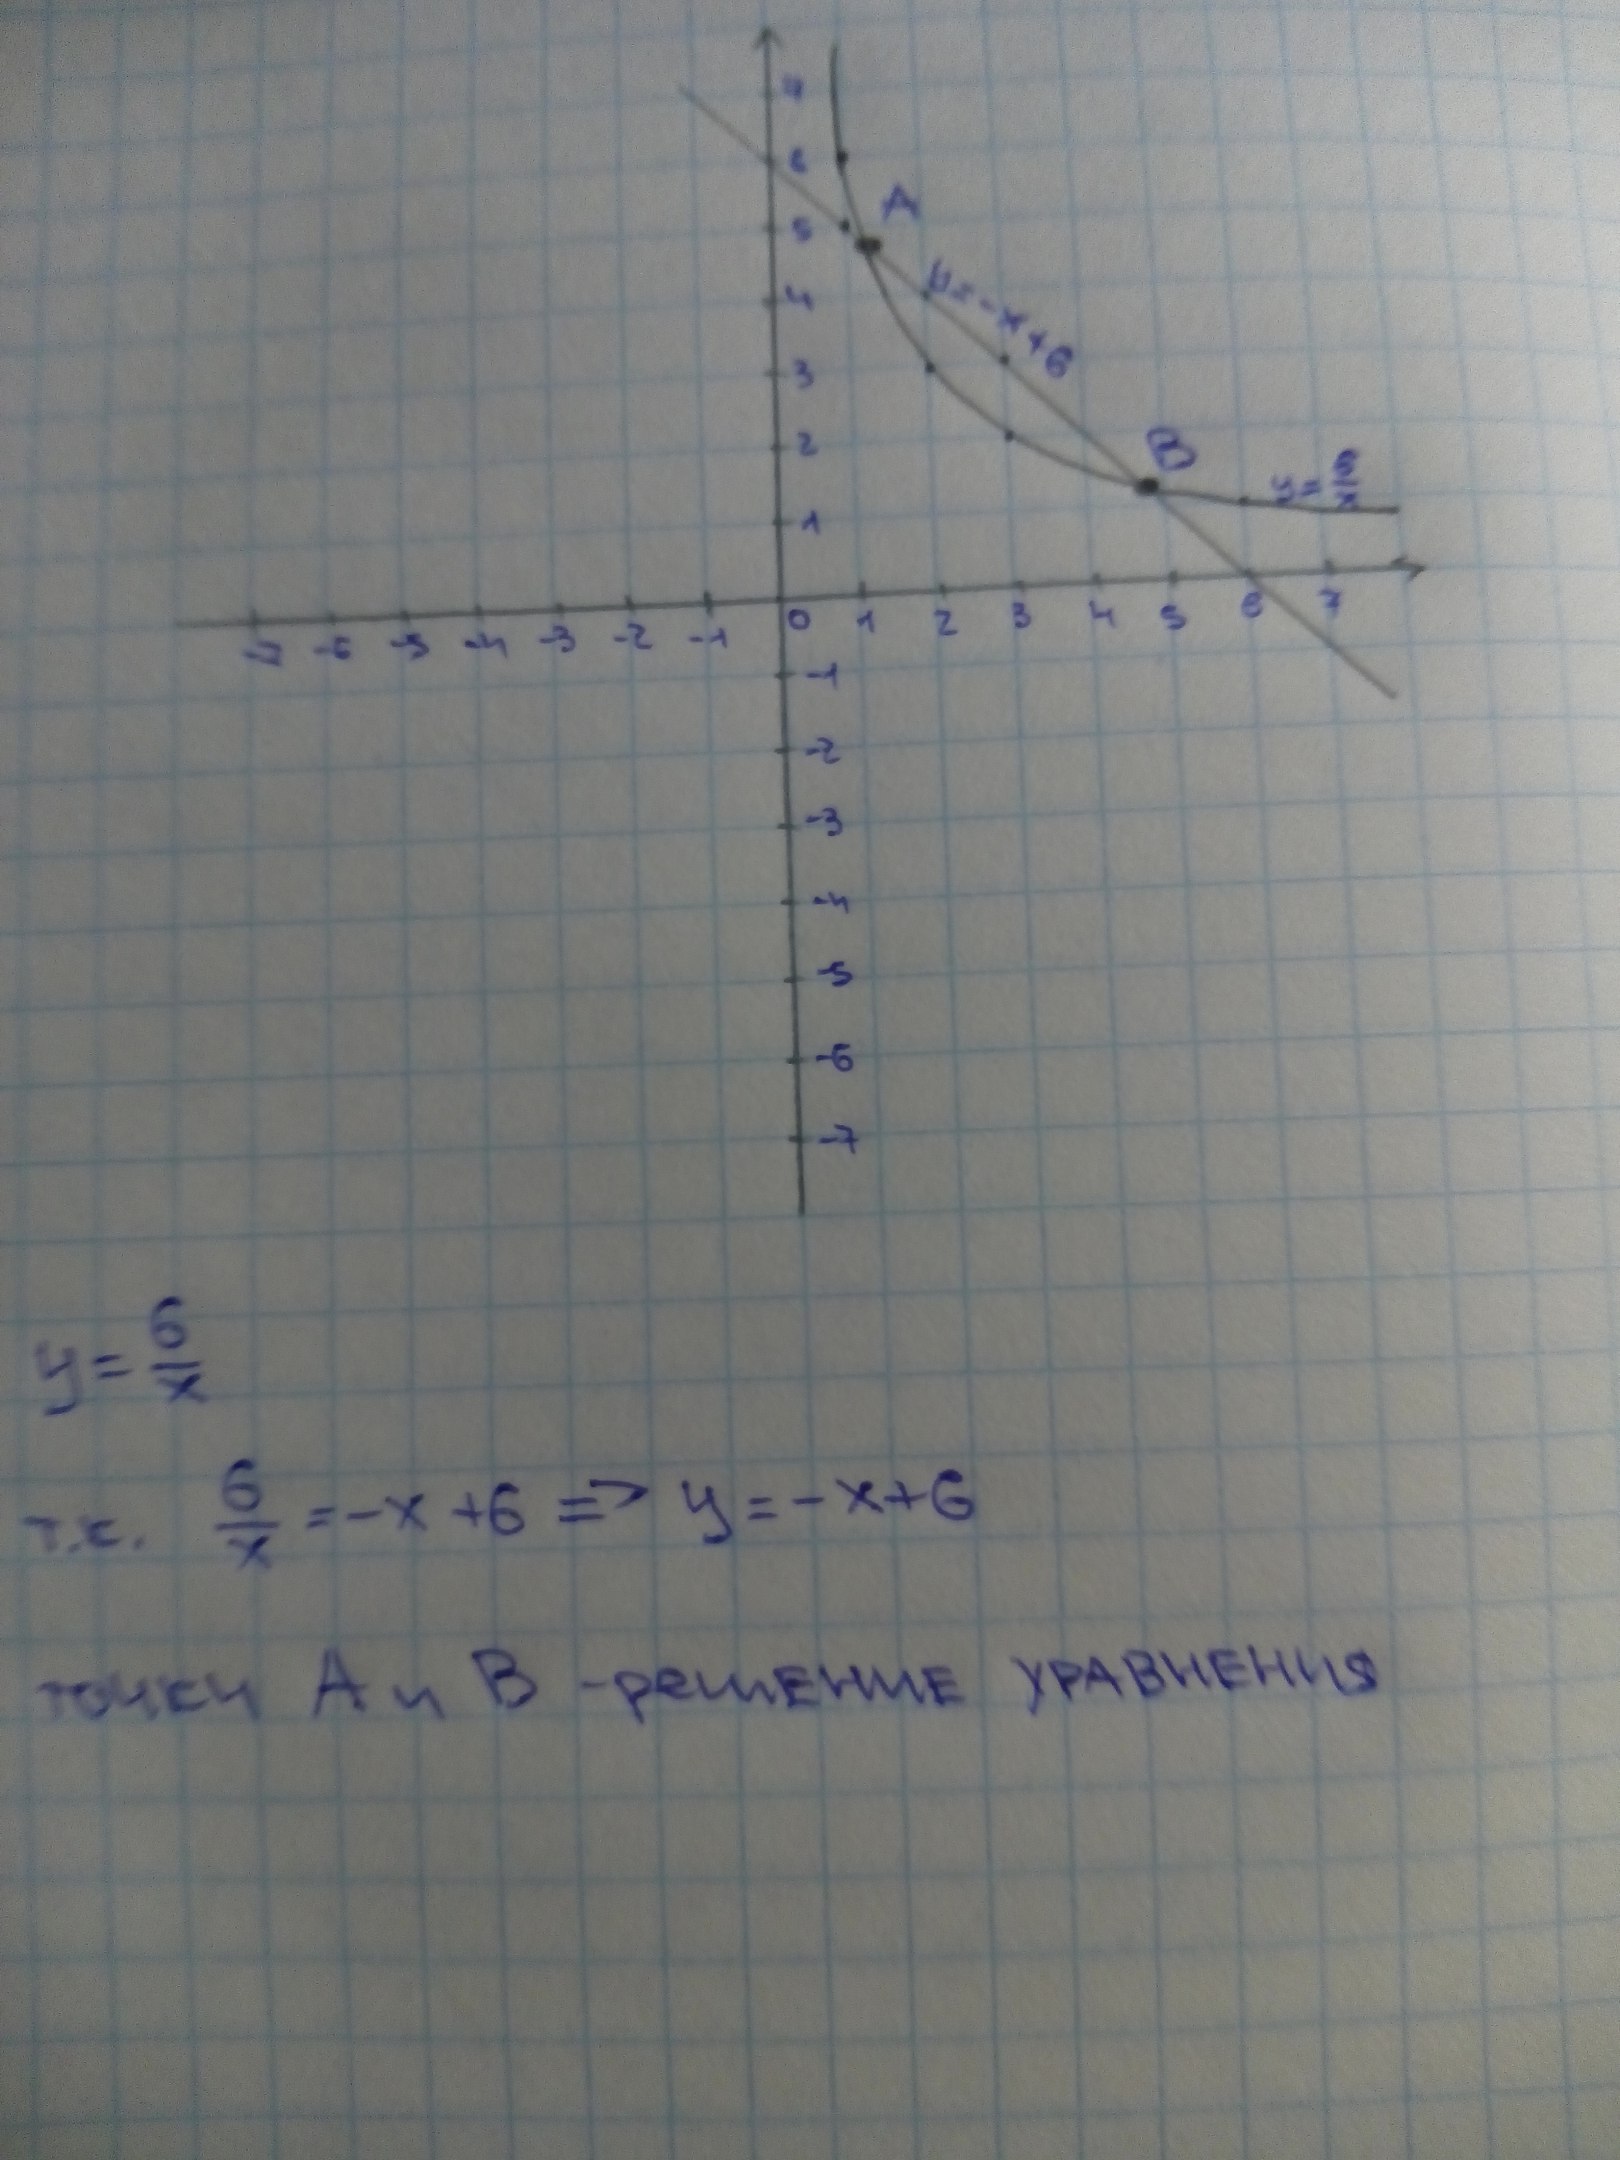 7
6
A
5
y=-x+6
4
3
2
B
y=6/x
1
-7 -6 -5 -4 -3 -2 -1 0 1 2 3 4 5 6 7
-1
-2
-3
-4
-5
-6
-7
y=6/x
т.к. 6/x=-x+6=>y=-x+6
точки А и В -решение уравнения